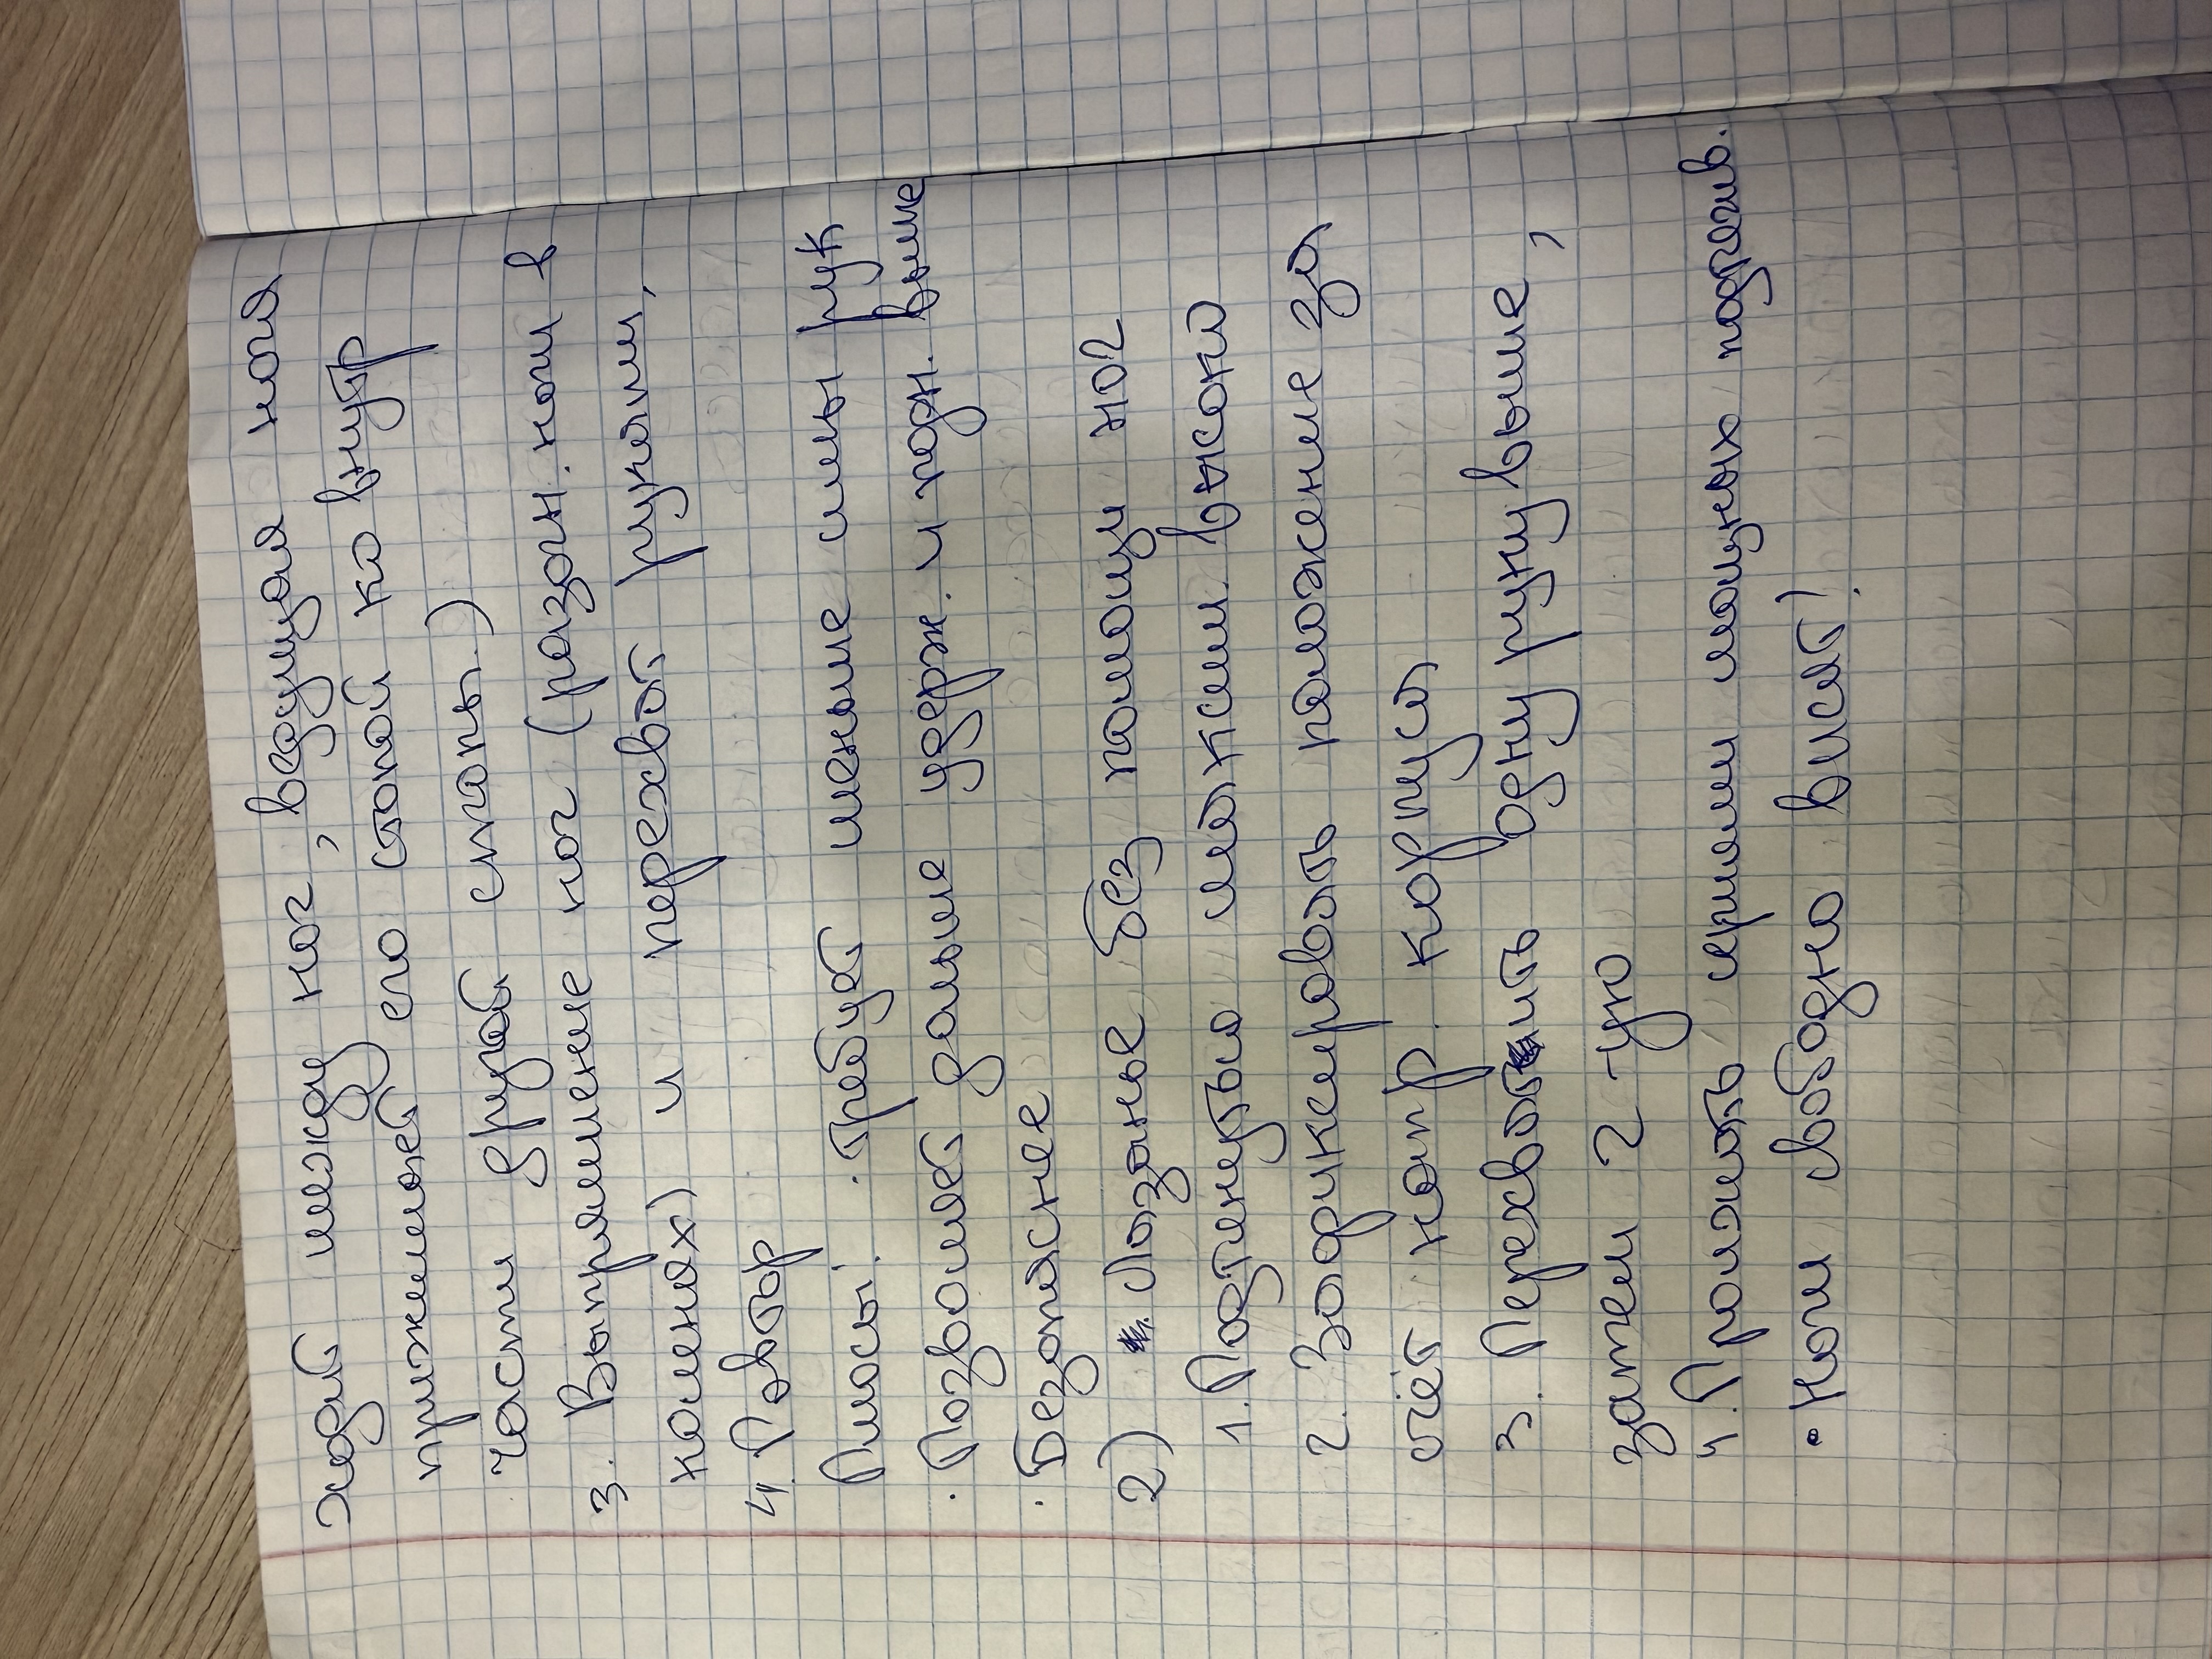 ходит между ног, ведущая нога
прижимает его стопой ко внутр
части другой стопы.)
3. Выпрямление ног (разгн. ноги в
коленях) и перехват руками,
4. Повтор
Плюсы: · Требует меньше силы рук
· Позволяет дальше удерж. и подн. выше
· Безопаснее
2) Лазанье без помощи ног
1. Подтянуться максим. высоко
2. Зафиксировать положение за
счёт напр. корпуса
3. Перехватить одну руку выше,
затем 2-ую
4. Помогать серией мощных подтягив.
• Ноги свободно висят!